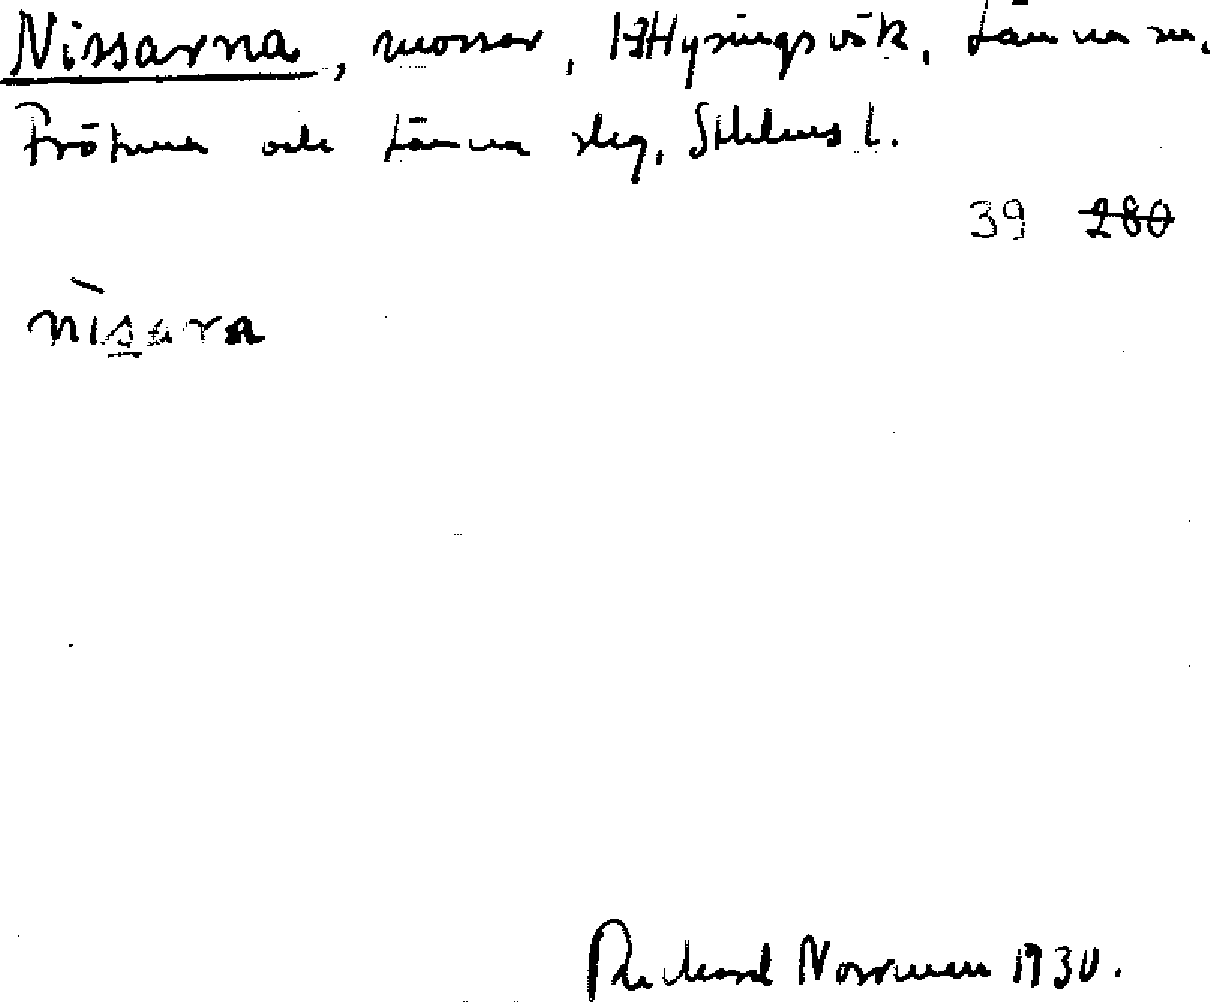 Nissarna, mossar, Hysingsvik, Länna sn,
Frötuna och Länna skg, Sthlms l.
39 280
nìsara
Richard Norrman 1930.